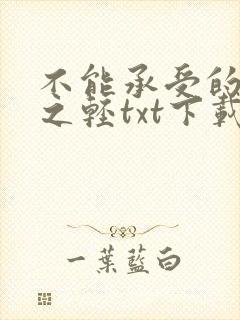 不能承受的
之轻txt下载
一葉藍白